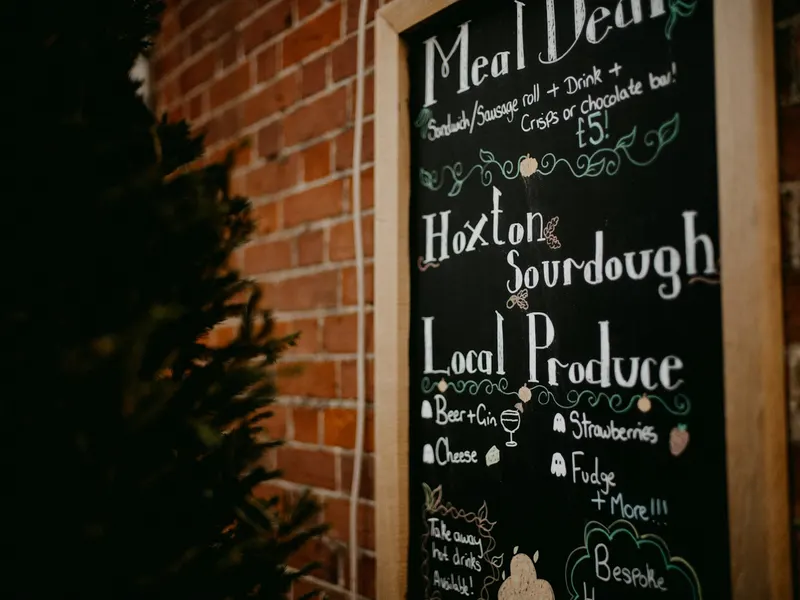 Meal Deal
Sandwich/Sausage roll + Drink +
Crisps or chocolate bar!
£5!
Hoxton
Sourdough
Local Produce
Beer+Gin
Cheese
Strawberries
Fudge
+ More!!!
Take away
hot drinks
Available!
Bespoke